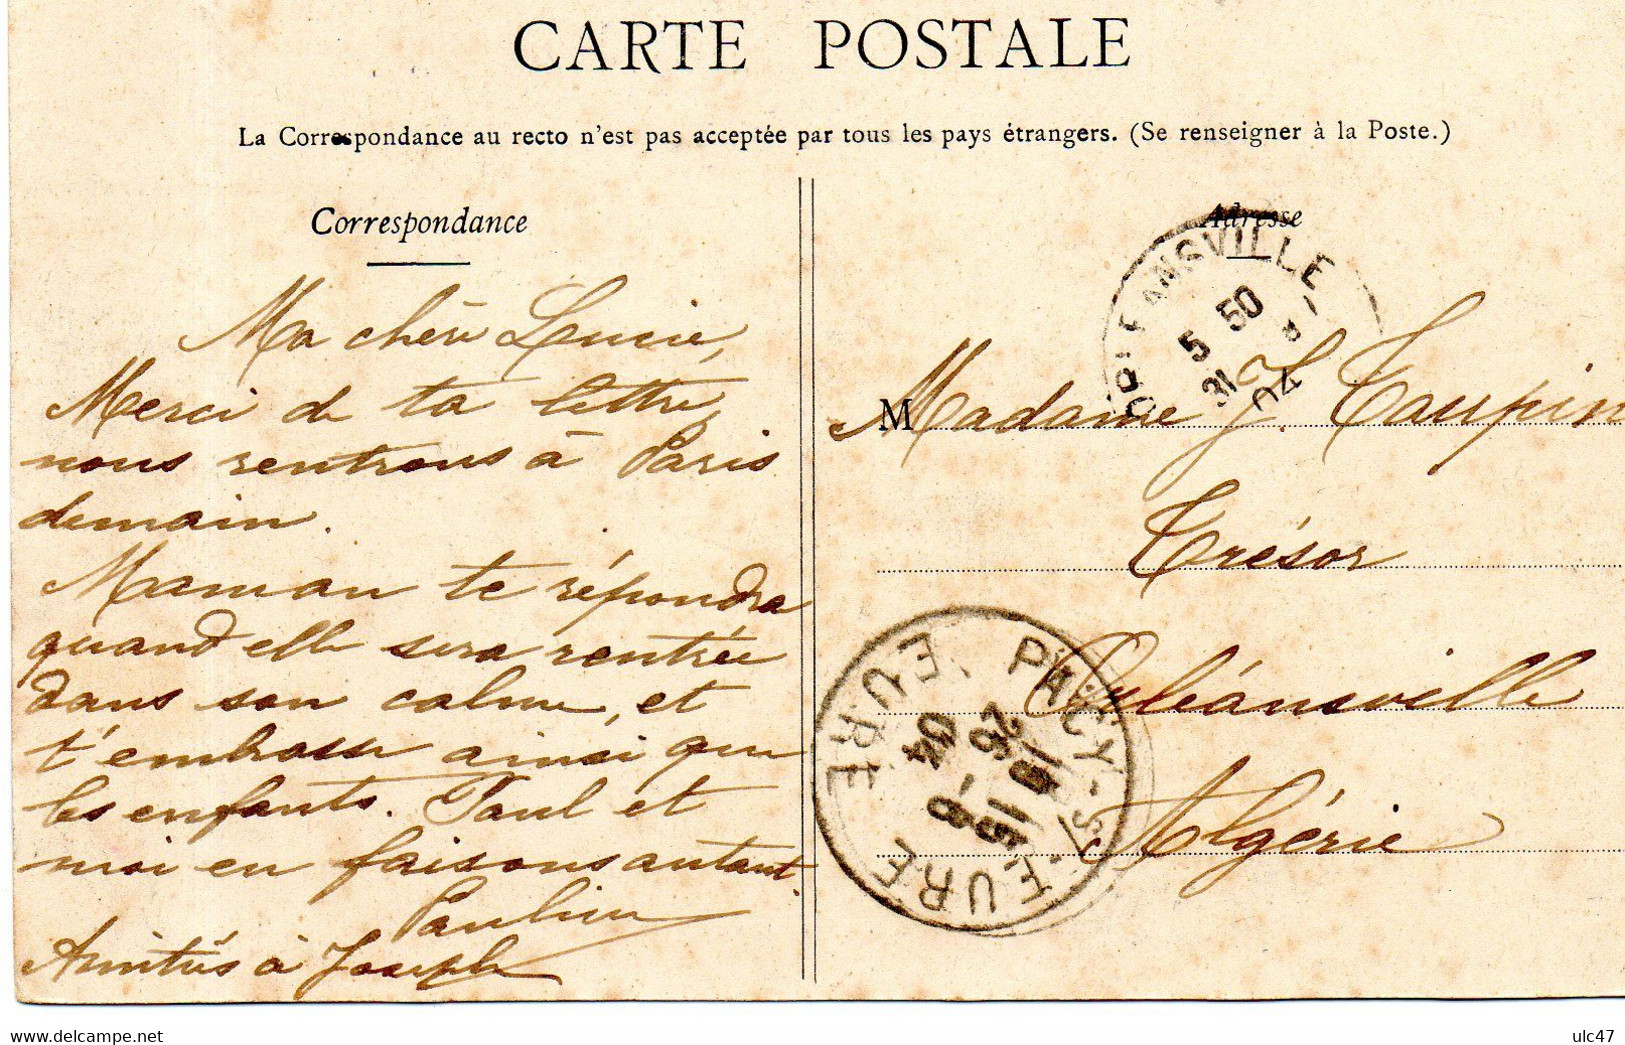 CARTE POSTALE
La Correspondance au recto n'est pas acceptée par tous les pays étrangers. (Se renseigner à la Poste.)
Correspondance
Ma chère Lucie,
Merci de ta lettre,
nous rentrons à Paris
demain.
Maman te répondra
quand elle sera rentrée
dans son calme, et
t'embrasse ainsi que
les enfants. Paul et
moi en faisons autant.
Pauline
Amitiés à Joseph
Adresse
ORLEANSVILLE
5 50
31 8 04
M Madame J. Taupin
Trésor
Orléansville
Algérie
PACY-S-EURE
EURE
15
26 -8
04
delcampe.net
ulc47